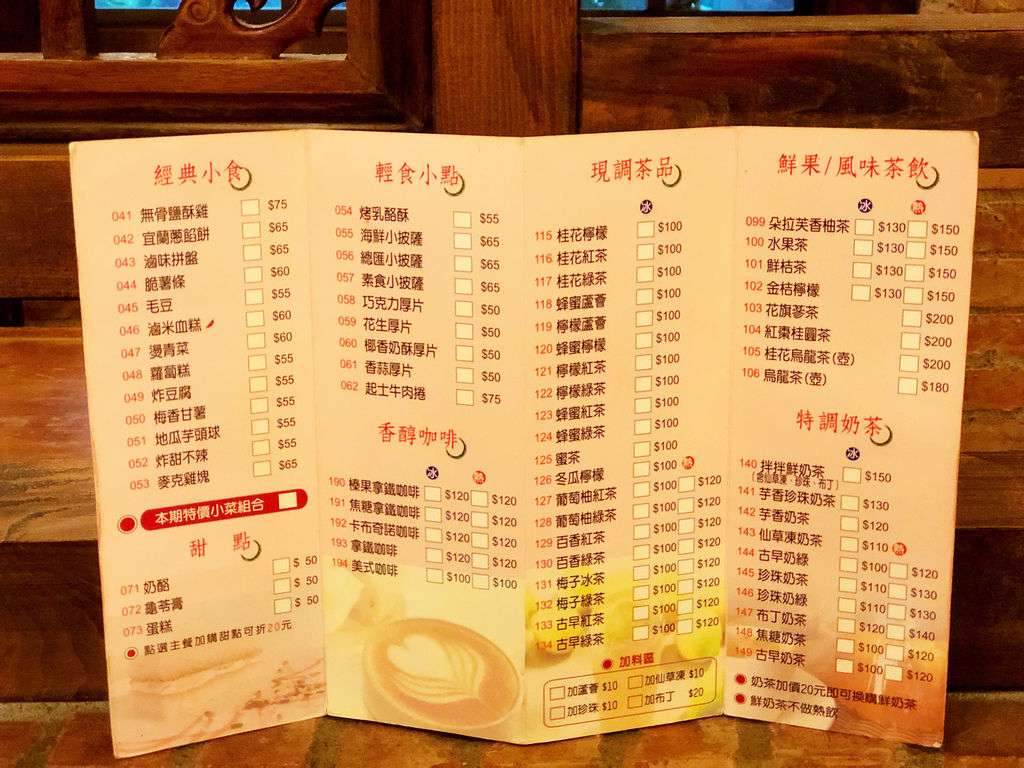 經典小食
041 無骨鹽酥雞 $75
042 宜蘭蔥餡餅 $65
043 滷味拼盤 $65
044 脆薯條 $60
045 毛豆 $55
046 滷米血糕 $60
047 燙青菜 $60
048 蘿蔔糕 $55
049 炸豆腐 $55
050 梅香甘薯 $55
051 地瓜芋頭球 $55
052 炸甜不辣 $55
053 麥克雞塊 $65
本期特價小菜組合
甜 點
071 奶酪 $ 50
072 龜苓膏 $ 50
073 蛋糕 $ 50
點選主餐加購甜點可折20元
輕食小點
054 烤乳酪酥 $55
055 海鮮小披薩 $65
056 總匯小披薩 $65
057 素食小披薩 $65
058 巧克力厚片 $50
059 花生厚片 $50
060 椰香奶酥厚片 $50
061 香蒜厚片 $50
062 起士牛肉捲 $75
香醇咖啡
冰 熱
190 榛果拿鐵咖啡 $120 $120
191 焦糖拿鐵咖啡 $120 $120
192 卡布奇諾咖啡 $120 $120
193 拿鐵咖啡 $120 $120
194 美式咖啡 $100 $100
現調茶品
冰
115 桂花檸檬 $100
116 桂花紅茶 $100
117 桂花綠茶 $100
118 蜂蜜蘆薈 $100
119 檸檬蘆薈 $100
120 蜂蜜檸檬 $100
121 檸檬紅茶 $100
122 檸檬綠茶 $100
123 蜂蜜紅茶 $100
124 蜂蜜綠茶 $100
125 蜜茶 $100
126 冬瓜檸檬 $100 熱
127 葡萄柚紅茶 $100 $120
128 葡萄柚綠茶 $100 $120
129 百香紅茶 $100 $120
130 百香綠茶 $100 $120
131 梅子冰茶 $100 $120
132 梅子綠茶 $100 $120
133 古早紅茶 $100 $120
134 古早綠茶 $100 $120
加料區
加蘆薈 $10 加仙草凍 $10
加珍珠 $10 加布丁 $20
鮮果/風味茶飲
冰 熱
099 朵拉芙香柚茶 $130 $150
100 水果茶 $130 $150
101 鮮桔茶 $130 $150
102 金桔檸檬 $130 $150
103 花旗蔘茶 $200
104 紅棗桂圓茶 $200
105 桂花烏龍茶(壺) $200
106 烏龍茶(壺) $180
特調奶茶
冰
140 拌拌鮮奶茶 $150
(含仙草凍、珍珠、布丁)
141 芋香珍珠奶茶 $130
142 芋香奶茶 $120
143 仙草凍奶茶 $110 熱
144 古早奶綠 $100 $120
145 珍珠奶茶 $110 $130
146 珍珠奶綠 $110 $130
147 布丁奶茶 $120 $140
148 焦糖奶茶 $100 $120
149 古早奶茶 $100 $120
奶茶加價20元即可換購鮮奶茶
鮮奶茶不做熱飲